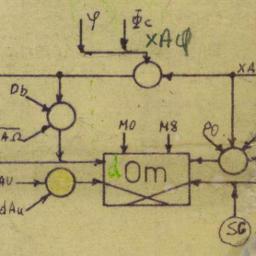 φ Φc
XAφ
XA
Db
M0 M8 PO
AΩ
d Om
AU
dAu
SG